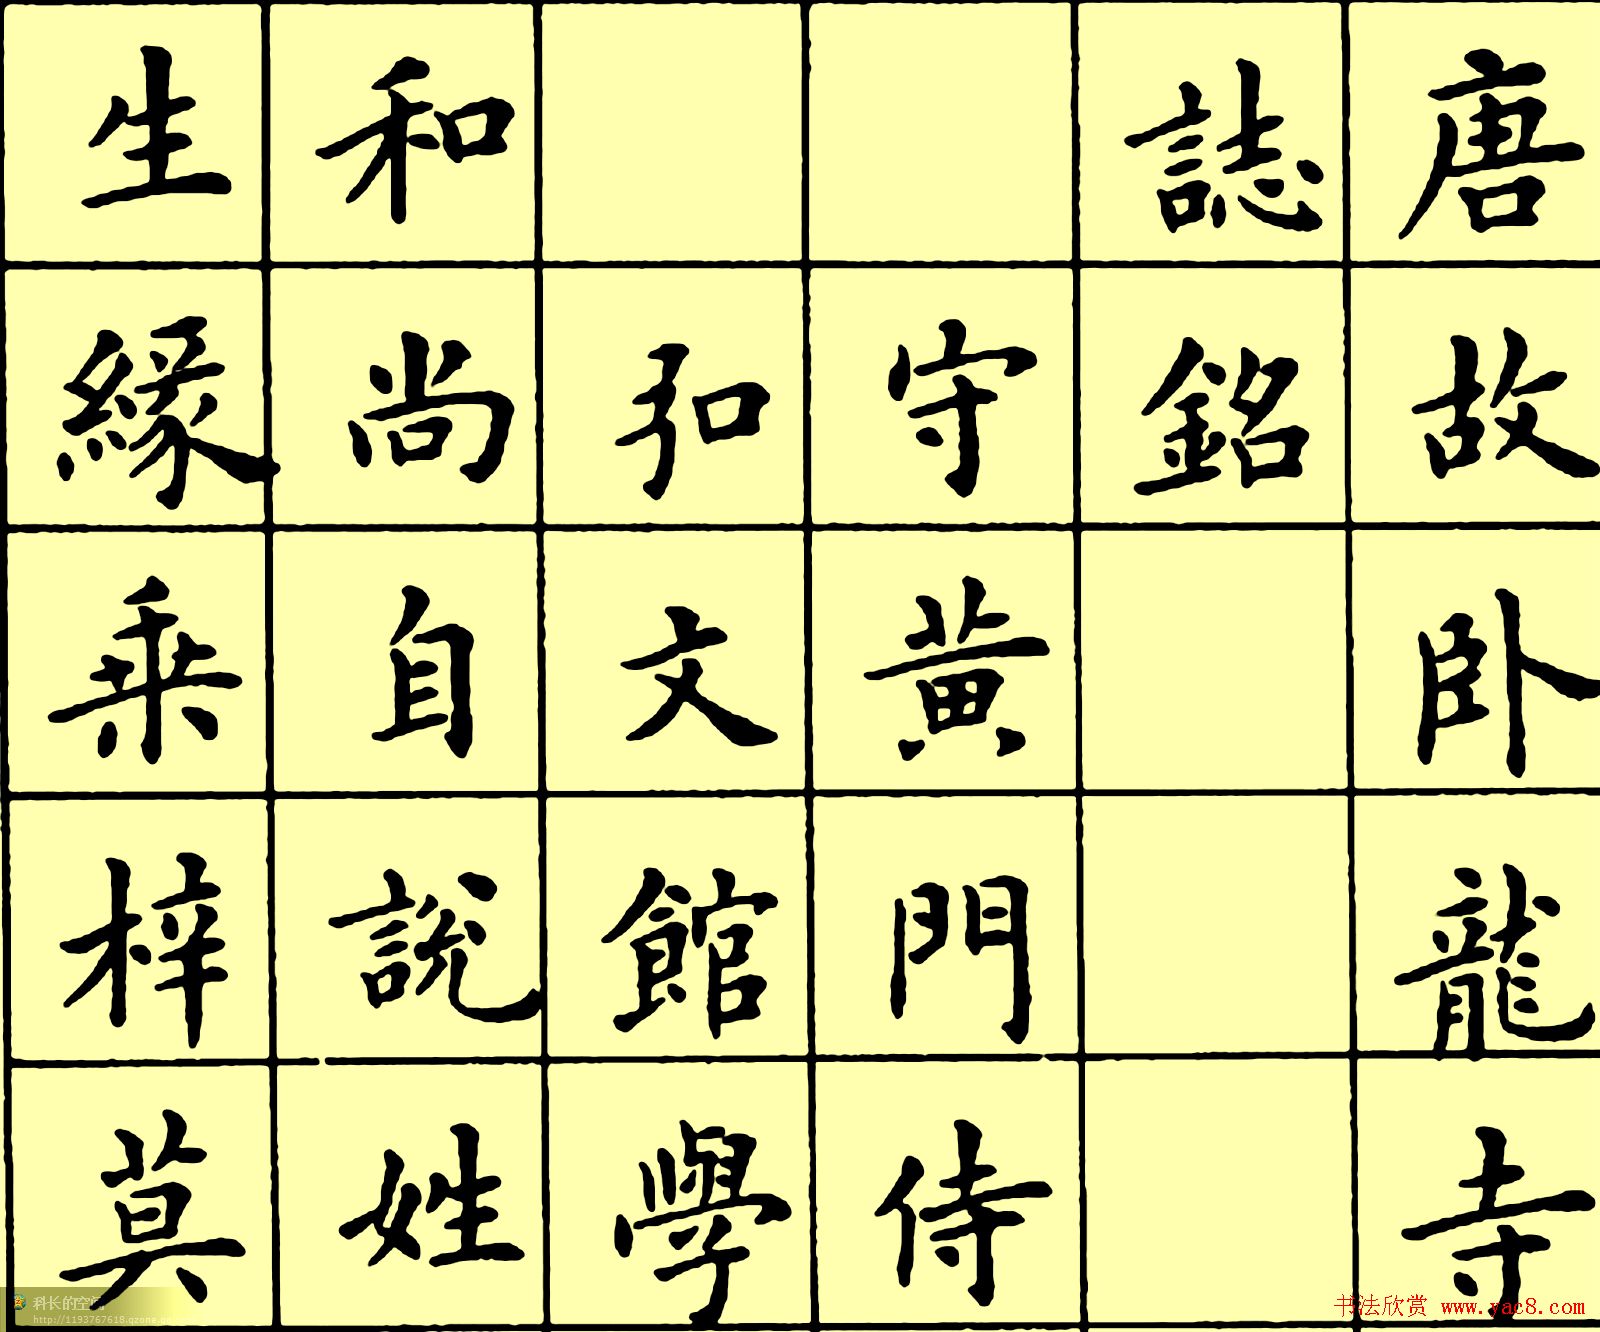 唐故卧龍寺
誌銘
守黃門侍
弘文館學
和尚自說姓
生緣乘梓莫
科长的空间
http://1193767618.qzone.qq
书法欣赏 www.yac8.com